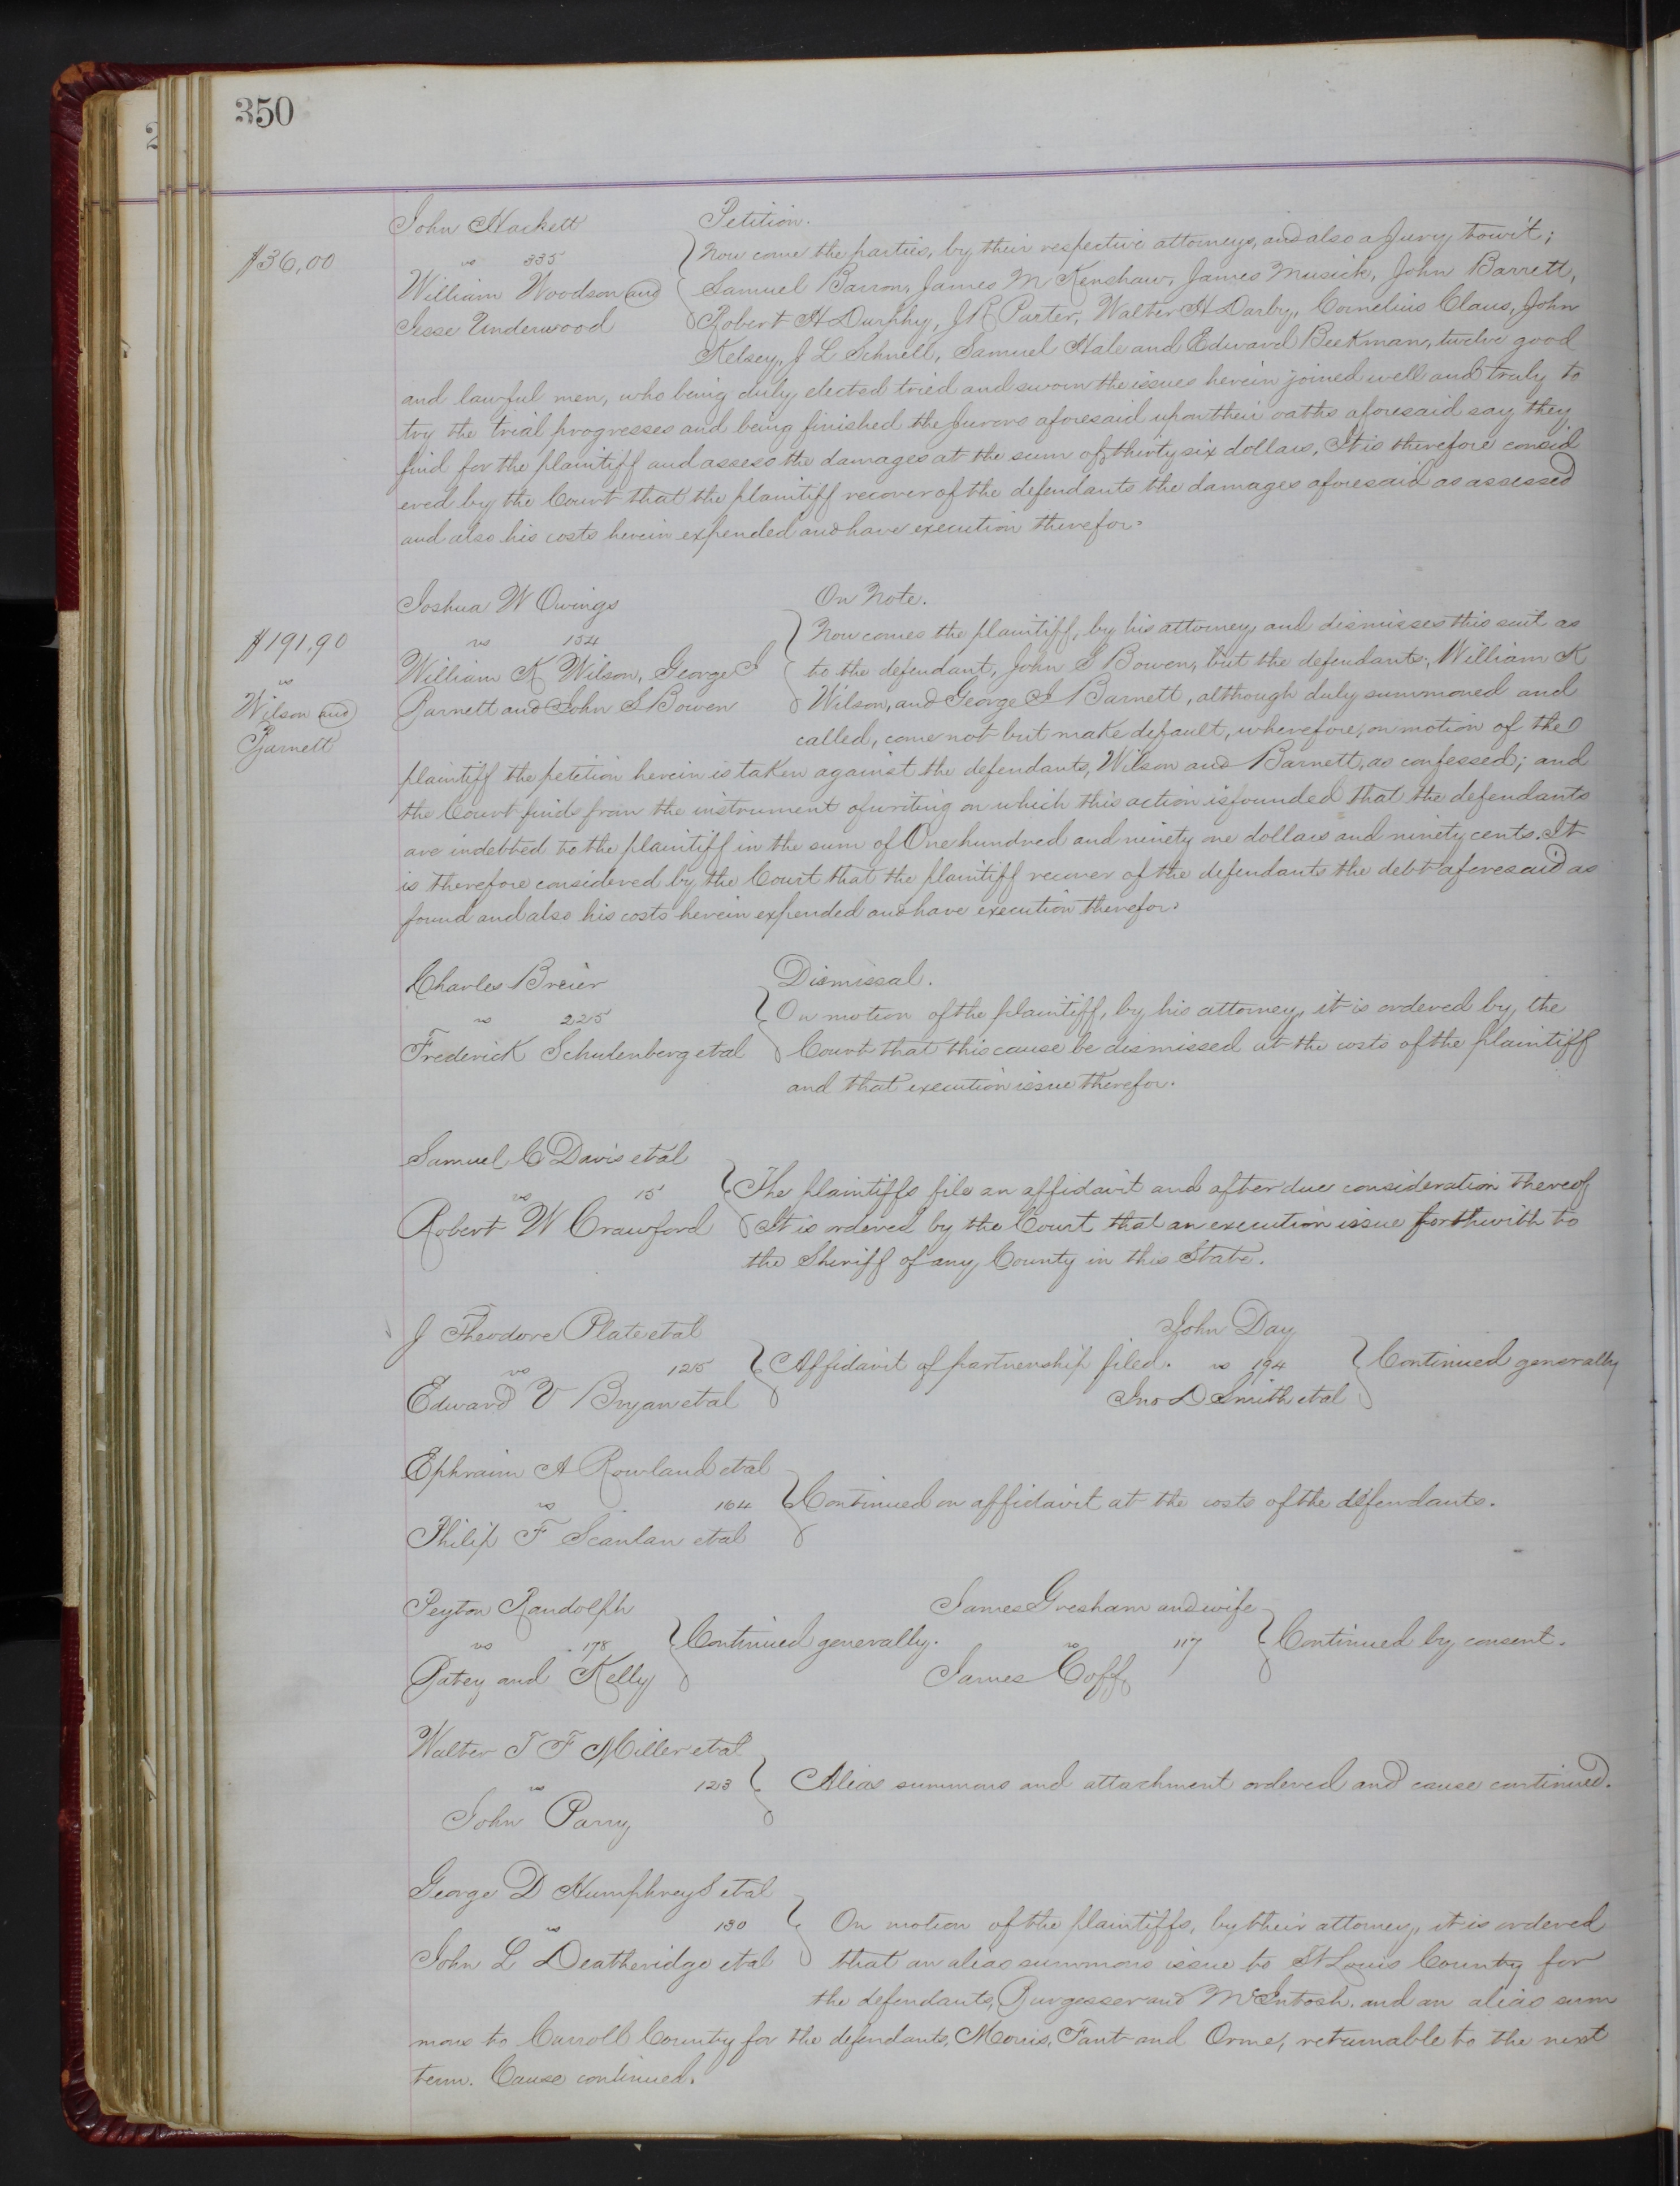 350
John Hackett
Petition.
$36,00
vs 335
Now come the parties, by their respective attorneys, and also a Jury towit;
William Woodson and
Samuel Barron, James M Kenshaw, James Musick, John Barrett,
Jesse Underwood
Robert H Durphy, J R Parter, Walter H Darby, Cornelius Claus, John
Kelsey, J L Schnell, Samuel Hale and Edward Beekman, twelve good
and lawful men, who being duly elected tried and sworn the issues herein joined well and truly to
try the trial progresses and being finished the Jurors aforesaid upon their oaths aforesaid say they
find for the plaintiff and assess the damages at the sum of thirty six dollars, It is therefore consid
ered by the Court that the plaintiff recover of the defendants the damages aforesaid as assessed
and also his costs herein expended and have execution therefor.
Joshua W Owings
On Note.
$191,90
vs 154
Now comes the plaintiff, by his attorney and dismisses this suit as
vs
William K Wilson, George I
to the defendant, John S Bowen, but the defendants, William K
Wilson and
Barnett and John S Bowen
Wilson, and George I Barnett, although duly summoned and
Barnett
called, come not but make default, wherefore, on motion of the
plaintiff the petition herein is taken against the defendants, Wilson and Barnett, as confessed; and
the Court finds from the instrument of writing on which this action is founded that the defendants
are indebted to the plaintiff in the sum of One hundred and ninety one dollars and ninety cents. It
is therefore considered by the Court that the plaintiff recover of the defendants the debt aforesaid as
found and also his costs herein expended and have execution therefor.
Charles Breier
Dismissal.
vs 225
On motion of the plaintiff, by his attorney, it is ordered by, the
Frederick Schulenberg etal
Court that this cause be dismissed at the costs of the plaintiff
and that execution issue therefor.
Samuel C Davis etal
vs 15
The plaintiffs file an affidavit and after due consideration thereof
Robert W Crawford
It is ordered by the Court that an execution issue forthwith to
the Sheriff of any County in this State.
J Theodore Plate etal
John Day
vs 125
Affidavit of partnership filed. vs 194 Continued generally
Edward V Bryan etal
Jno D Smith etal
Ephraim A Rowland etal
vs 164
Continued on affidavit at the costs of the defendants.
Philip F Scanlan etal
Peyton Randolph
James Gresham and wife
vs 178
Continued generally. vs 117 Continued by consent.
Patey and Kelly
James Coff
Walter T F Miller etal
vs 123
Alias summons and attachment ordered and cause continued.
John Parry
George D Humphreys etal
vs 130
On motion of the plaintiffs, by their attorney, it is ordered
John L Deatheridge etal
that an alias summons issue to St Louis County for
the defendants, Burgesser and McIntosh, and an alias sum
mons to Carroll County for the defendants, Morris, Fant and Orme, returnable to the next
term. Cause continued.